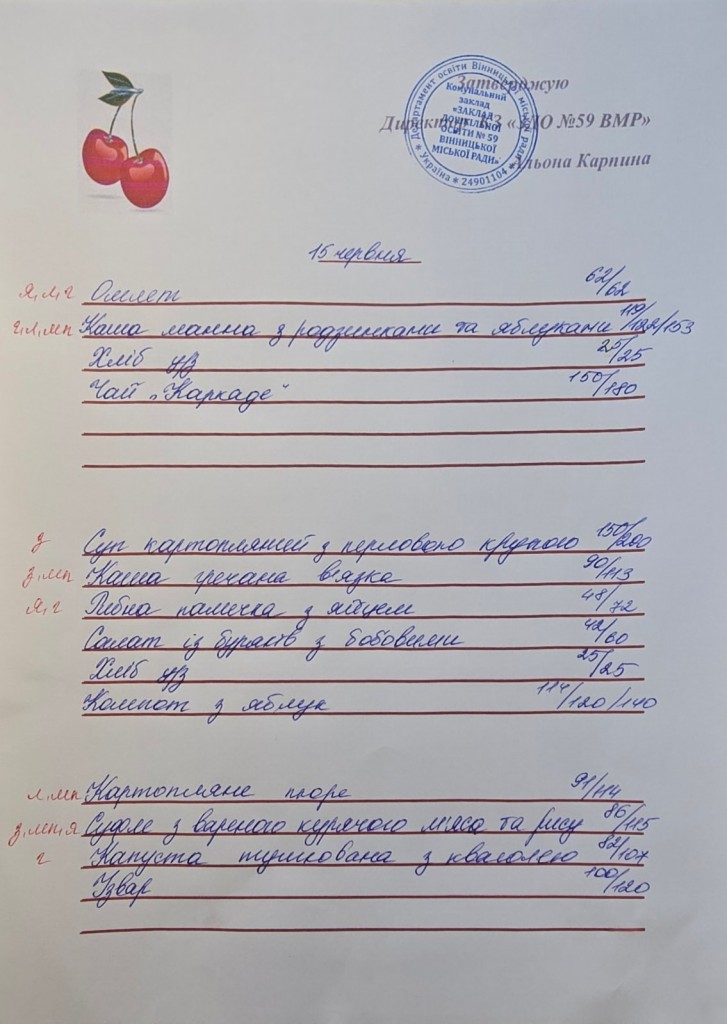 Затверджую
Директор КЗ «ЗДО №59 ВМР»
Альона Карпина
Департамент освіти Вінницької міської ради
* Україна * 24901104 *
Комунальний
заклад
«ЗАКЛАД
ДОШКІЛЬНОЇ
ОСВІТИ № 59
ВІННИЦЬКОЇ
МІСЬКОЇ РАДИ»
15 червня
я, л, г Омлет 62/62
г, л, мп Каша манна з родзинками та яблуками 119/122/153
Хліб ц/з 25/25
Чай „Каркаде" 150/180
з Суп картопляний з перловою крупою 150/200
з, мп Каша гречана в'язка 90/113
я, г Рибна паличка з яйцем 48/72
Салат із буряків з бобовими 42/60
Хліб ц/з 25/25
Компот з яблук 114/120/140
л, мп Картопляне пюре 91/114
з, мп, я Суфле з вареного курячого м'яса та рису 86/115
г Капуста тушкована з квасолею 82/107
Узвар 100/120